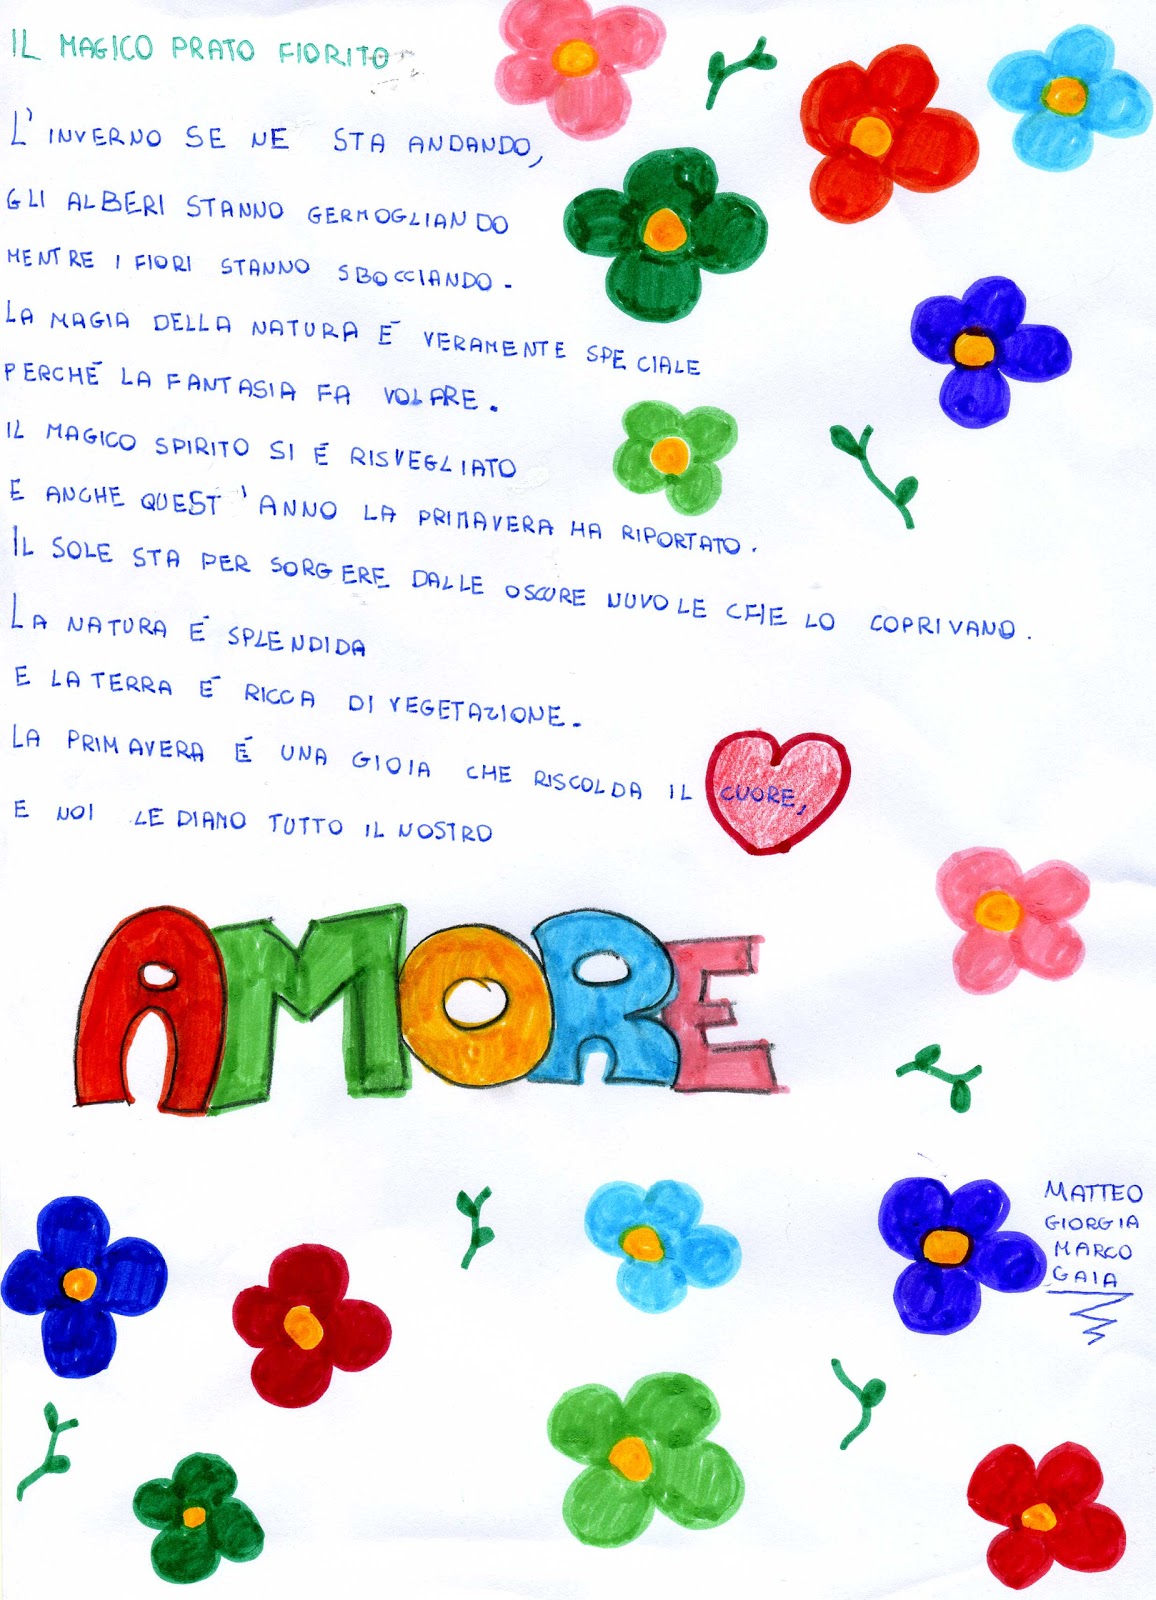 IL MAGICO PRATO FIORITO
L'INVERNO SE NE STA ANDANDO,
GLI ALBERI STANNO GERMOGLIANDO
MENTRE I FIORI STANNO SBOCCIANDO.
LA MAGIA DELLA NATURA É VERAMENTE SPECIALE
PERCHÉ LA FANTASIA FA VOLARE.
IL MAGICO SPIRITO SI É RISVEGLIATO
E ANCHE QUEST'ANNO LA PRIMAVERA HA RIPORTATO.
IL SOLE STA PER SORGERE DALLE OSCURE NUVOLE CHE LO COPRIVANO.
LA NATURA É SPLENDIDA
E LA TERRA É RICCA DI VEGETAZIONE.
LA PRIMAVERA É UNA GIOIA CHE RISCOLDA IL CUORE,
E NOI LE DIAMO TUTTO IL NOSTRO
AMORE
MATTEO
GIORGIA
MARCO
GAIA